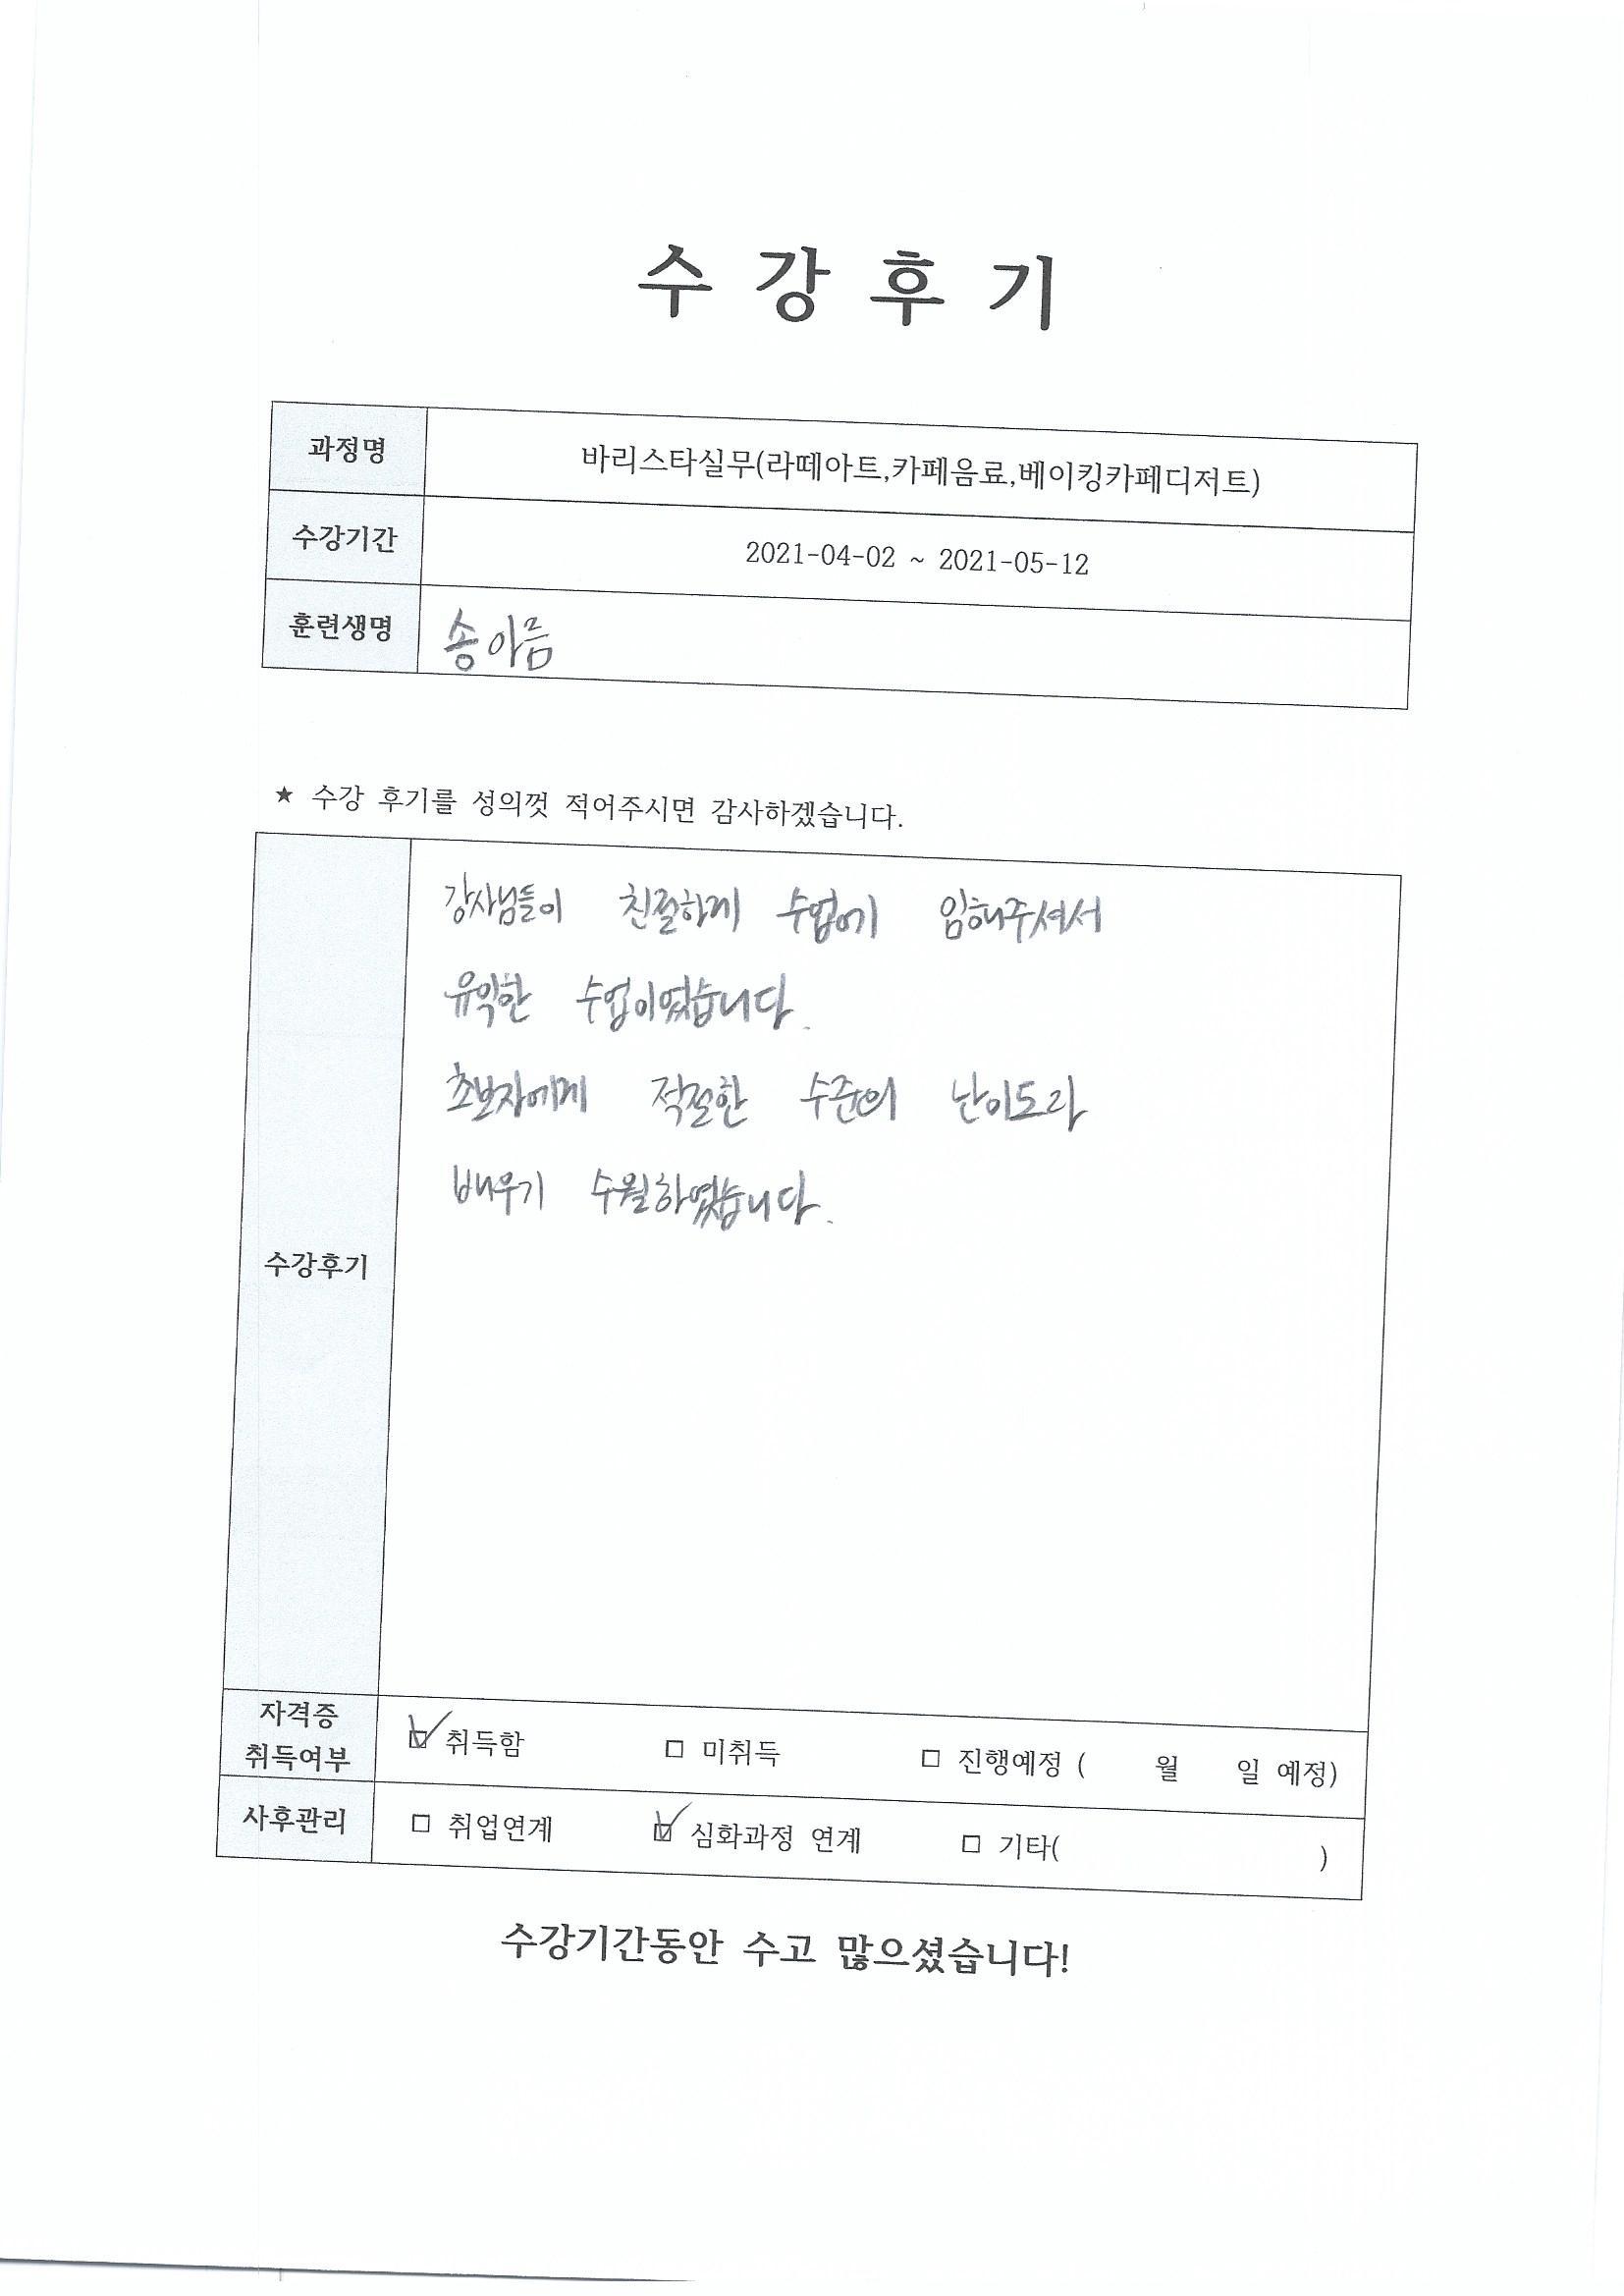 수강후기
과정명 바리스타실무(라떼아트,카페음료,베이킹카페디저트)
수강기간 2021-04-02 ~ 2021-05-12
훈련생명 송아름
★ 수강 후기를 성의껏 적어주시면 감사하겠습니다.
강사님들이 친절하게 수업에 임해주셔서
유익한 수업이였습니다.
초보자에게 적절한 수준의 난이도라
배우기 수월하였습니다.
수강후기
자격증
취득여부
☑ 취득함 □ 미취득 □ 진행예정 ( 월 일 예정)
사후관리 □ 취업연계 ☑ 심화과정 연계 □ 기타( )
수강기간동안 수고 많으셨습니다!